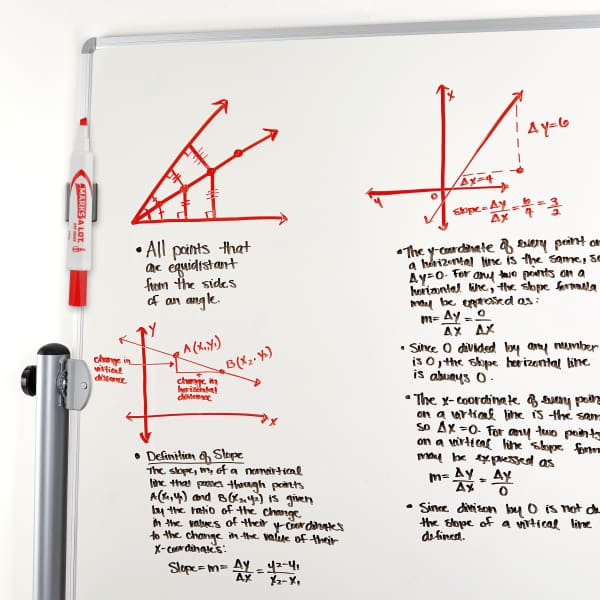 MARKS A LOT
• All points that
are equidistant
from the sides
of an angle.
Y
A(X₁,Y₁)
B(X₂,Y₂)
change in
virtical
distance
change in
horizontal
distance
X
• Definition of Slope
The slope, m, of a nonvirtical
line that passes through points
A(X₁,Y₁) and B(X₂,Y₂) is given
by the ratio of the change
in the values of their y-coordinates
to the change in the value of their
X-coordinates:
Slope = m = ΔY/ΔX = Y₂-Y₁/X₂-X₁
X
ΔY=6
ΔX=4
Y
0
Slope = ΔY/ΔX = 6/4 = 3/2
• The y-coordinate of every point on
a horizontal line is the same, so
ΔY=0. For any two points on a
horizontal line, the slope formula
may be expressed as:
m = ΔY/ΔX = 0/ΔX
• Since 0 divided by any number
is 0, the slope horizontal line
is always 0.
• The x-coordinate of every point
on a virtical line is the same
so ΔX=0. For any two points
on a virtical line slope form
may be expressed as
m = ΔY/ΔX = ΔY/0
• Since divison by 0 is not de
the slope of a virtical line
defined.